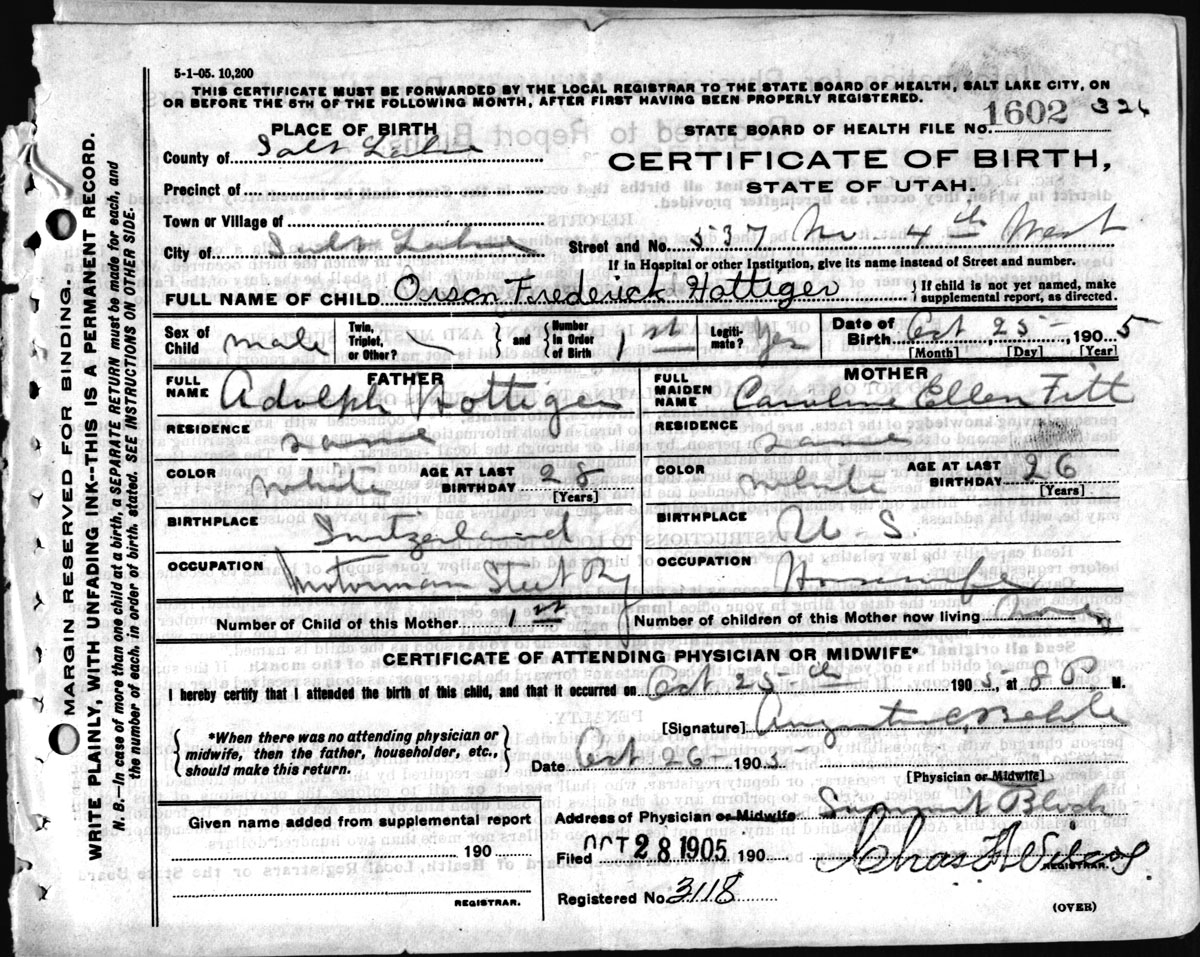 5-1-05. 10,200
THIS CERTIFICATE MUST BE FORWARDED BY THE LOCAL REGISTRAR TO THE STATE BOARD OF HEALTH, SALT LAKE CITY, ON
OR BEFORE THE 5TH OF THE FOLLOWING MONTH, AFTER FIRST HAVING BEEN PROPERLY REGISTERED.
PLACE OF BIRTH
STATE BOARD OF HEALTH FILE NO. 1602 326
County of Salt Lake
CERTIFICATE OF BIRTH,
Precinct of
STATE OF UTAH.
Town or Village of
City of Salt Lake Street and No. 537 No. 4th West
If in Hospital or other Institution, give its name instead of Street and number.
FULL NAME OF CHILD Orson Frederick Hottiger { If child is not yet named, make
supplemental report, as directed.
Sex of Child male Twin, Triplet, or Other? } and { Number in Order of Birth 1st Legiti-mate? Yes Date of Birth Oct 25 - 1905
[Month] [Day] [Year]
FATHER
MOTHER
FULL NAME Adolph Hottiger
FULL MAIDEN NAME Caroline Ellen Fitt
RESIDENCE same
RESIDENCE same
COLOR white AGE AT LAST BIRTHDAY 28 [Years]
COLOR white AGE AT LAST BIRTHDAY 26 [Years]
BIRTHPLACE Switzerland
BIRTHPLACE U.S.
OCCUPATION Motorman Street Ry
OCCUPATION Housewife
Number of Child of this Mother 1st Number of children of this Mother now living One
CERTIFICATE OF ATTENDING PHYSICIAN OR MIDWIFE*
I hereby certify that I attended the birth of this child, and that it occurred on Oct 25th 1905, at 8 P. M.
{ *When there was no attending physician or
midwife, then the father, householder, etc.,
should make this return. }
[Signature] Augustus C Behle
Date Oct 26 - 1905
[Physician or Midwife]
Given name added from supplemental report
190
REGISTRAR.
Address of Physician or Midwife Summit Block
Filed OCT 28 1905 190 Chas A
REGISTRAR.
Registered No. 3118
(OVER)
MARGIN RESERVED FOR BINDING.
WRITE PLAINLY, WITH UNFADING INK--THIS IS A PERMANENT RECORD.
N. B.--In case of more than one child at a birth, a SEPARATE RETURN must be made for each, and
the number of each, in order of birth, stated. SEE INSTRUCTIONS ON OTHER SIDE.